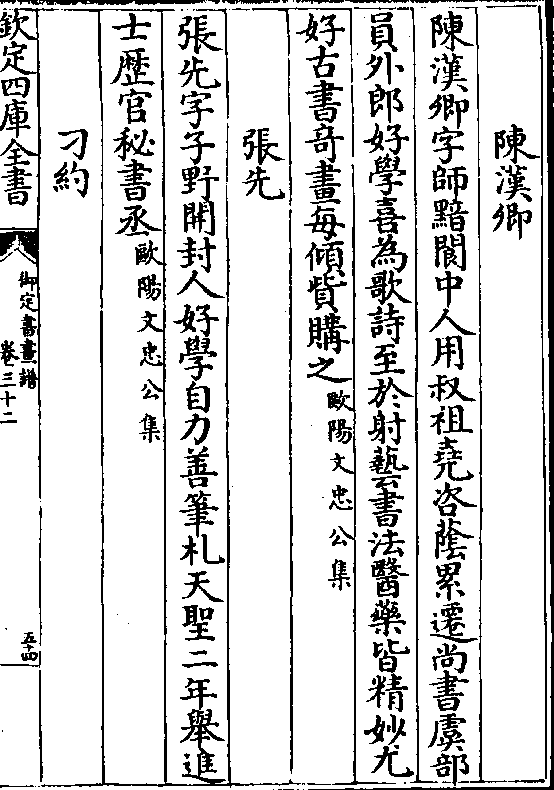 陳漢卿
陳漢卿字師黯閬中人用叔祖堯咨蔭累遷尚書虞部
員外郎好學喜為歌詩至於射藝書法醫藥皆精妙尤
好古書奇畫每傾貲購之歐陽文忠公集
張先
張先字子野開封人好學自力善筆札天聖二年舉進
士歴官秘書丞歐陽文忠公集
刁約
欽定四庫全書
御定書畫譜
卷三十二
五十四